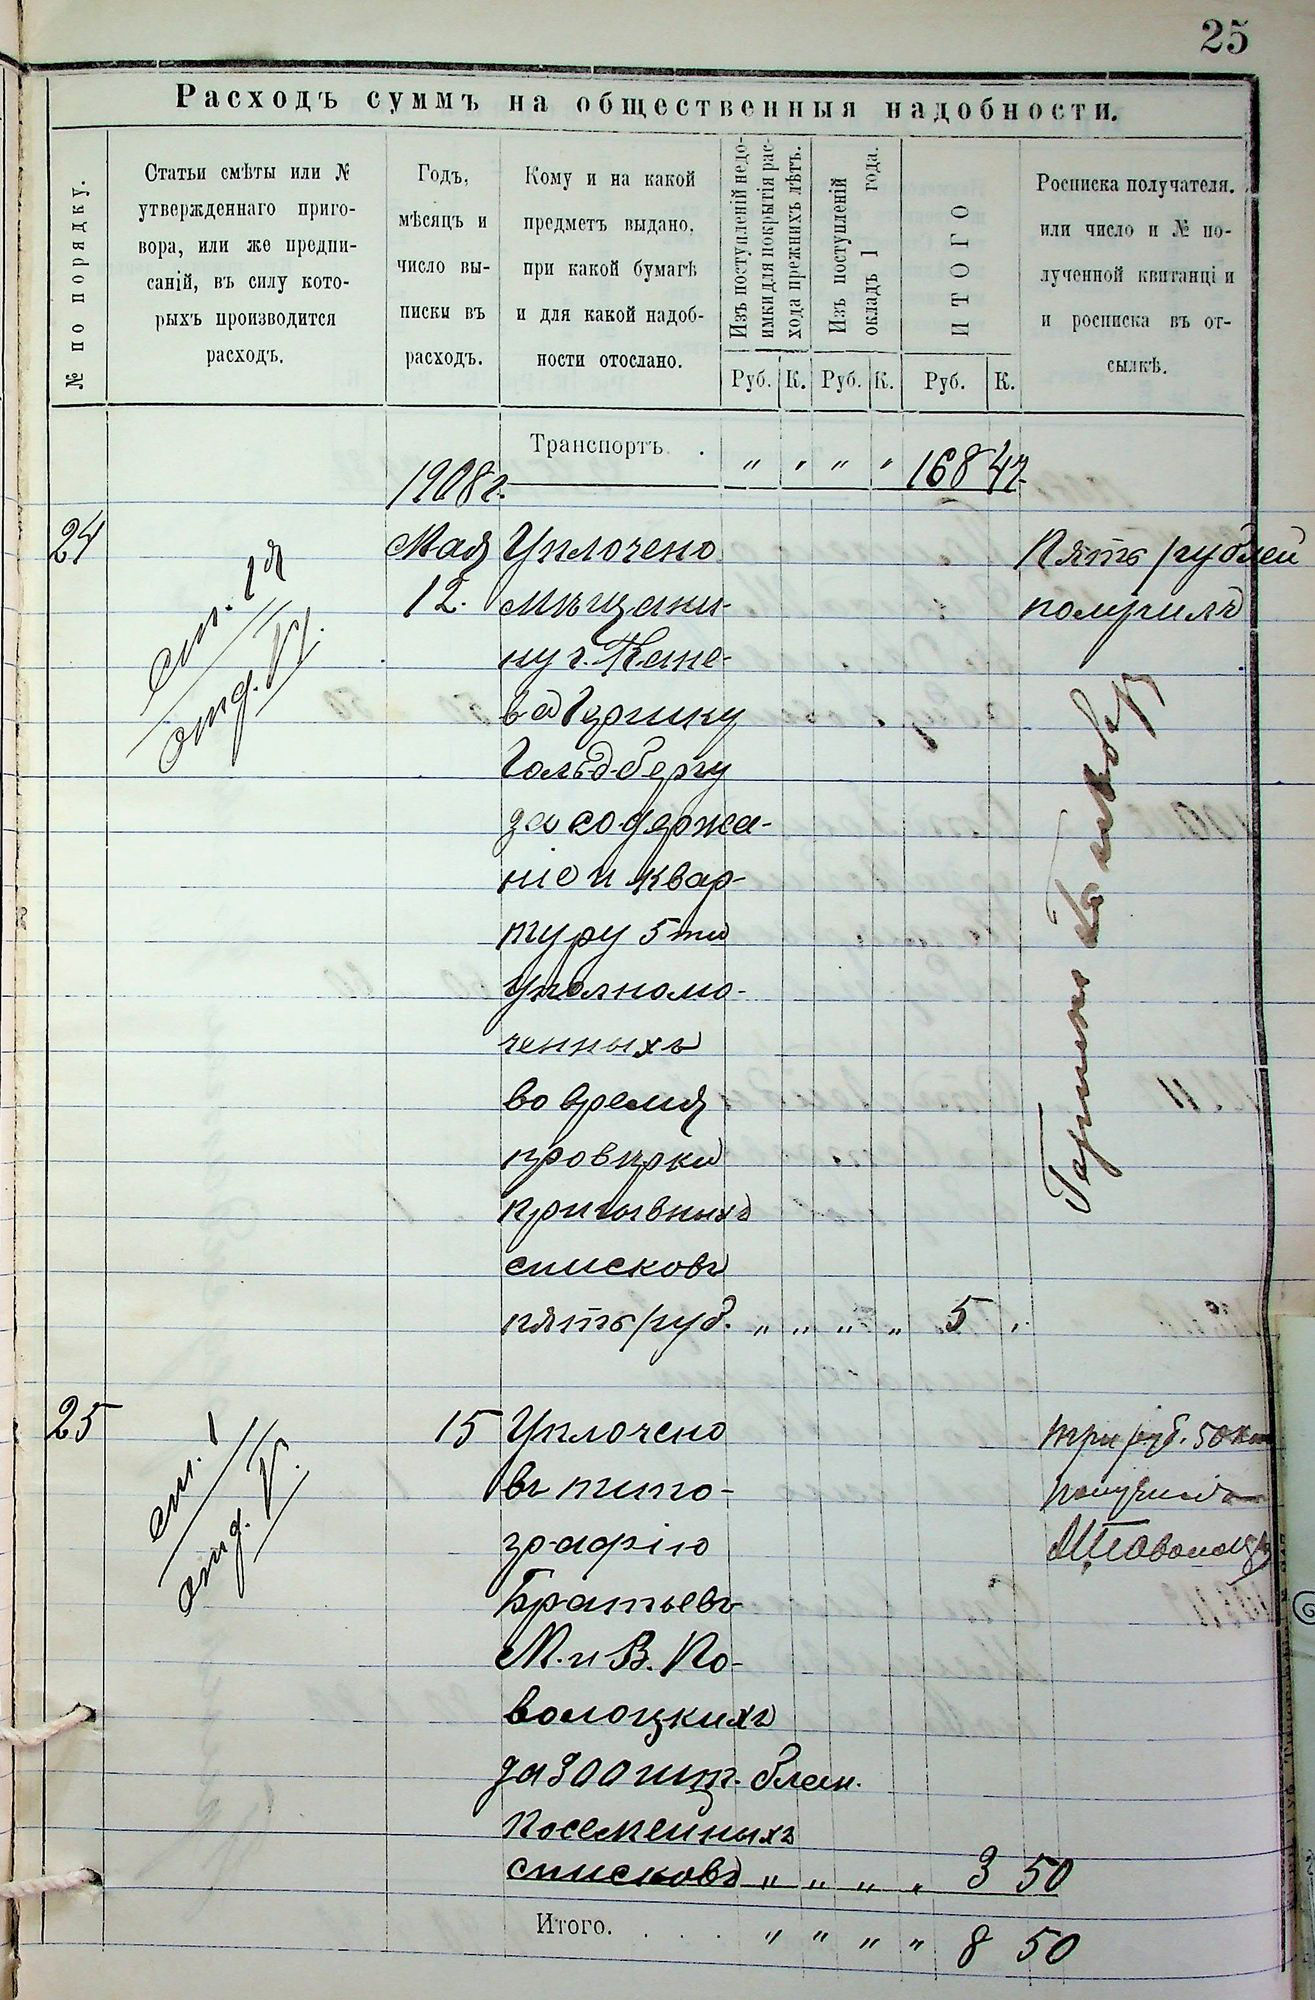 25
Расходъ суммъ на общественныя надобности.
№ по порядку.
Статьи смѣты или №
утвержденнаго приго-
вора, или же предпи-
саній, въ силу кото-
рыхъ производится
расходъ.
Годъ,
мѣсяцъ и
число вы-
писки въ
расходъ.
Кому и на какой
предметъ выдано,
при какой бумагѣ
и для какой надоб-
ности отослано.
Изъ поступленій недо-
имки для покрытія рас-
хода прежнихъ лѣтъ.
Изъ поступленій
окладъ 1 года.
ИТОГО
Росписка получателя.
или число и № по-
лученной квитанціи
и росписка въ от-
сылкѣ.
Руб. К. Руб. К. Руб. К.
Транспортъ . „ „ „ „ 168 47
1908 г.
24 ст. 1я отд. V. Мая Уплочено Пять рублей
12. мѣщани- получилъ
ну г. Кане-
ва Гершку
Гольдбергу
за содержа-
ніе и квар-
тиру 5ти
уполномо-
ченныхъ
во время
провѣрки
призывныхъ
списковъ
пять руб. „ „ „ „ 5 „
25 ст. 1 отд. V. 15 Уплочено три руб. 50 коп
въ типо- получилъ
графію
Братьевъ
М. и В. По-
волоцкихъ
за 300 шт. блан.
посемейныхъ
списковъ „ „ „ „ 3 50
Итого. . . . „ „ „ „ 8 50